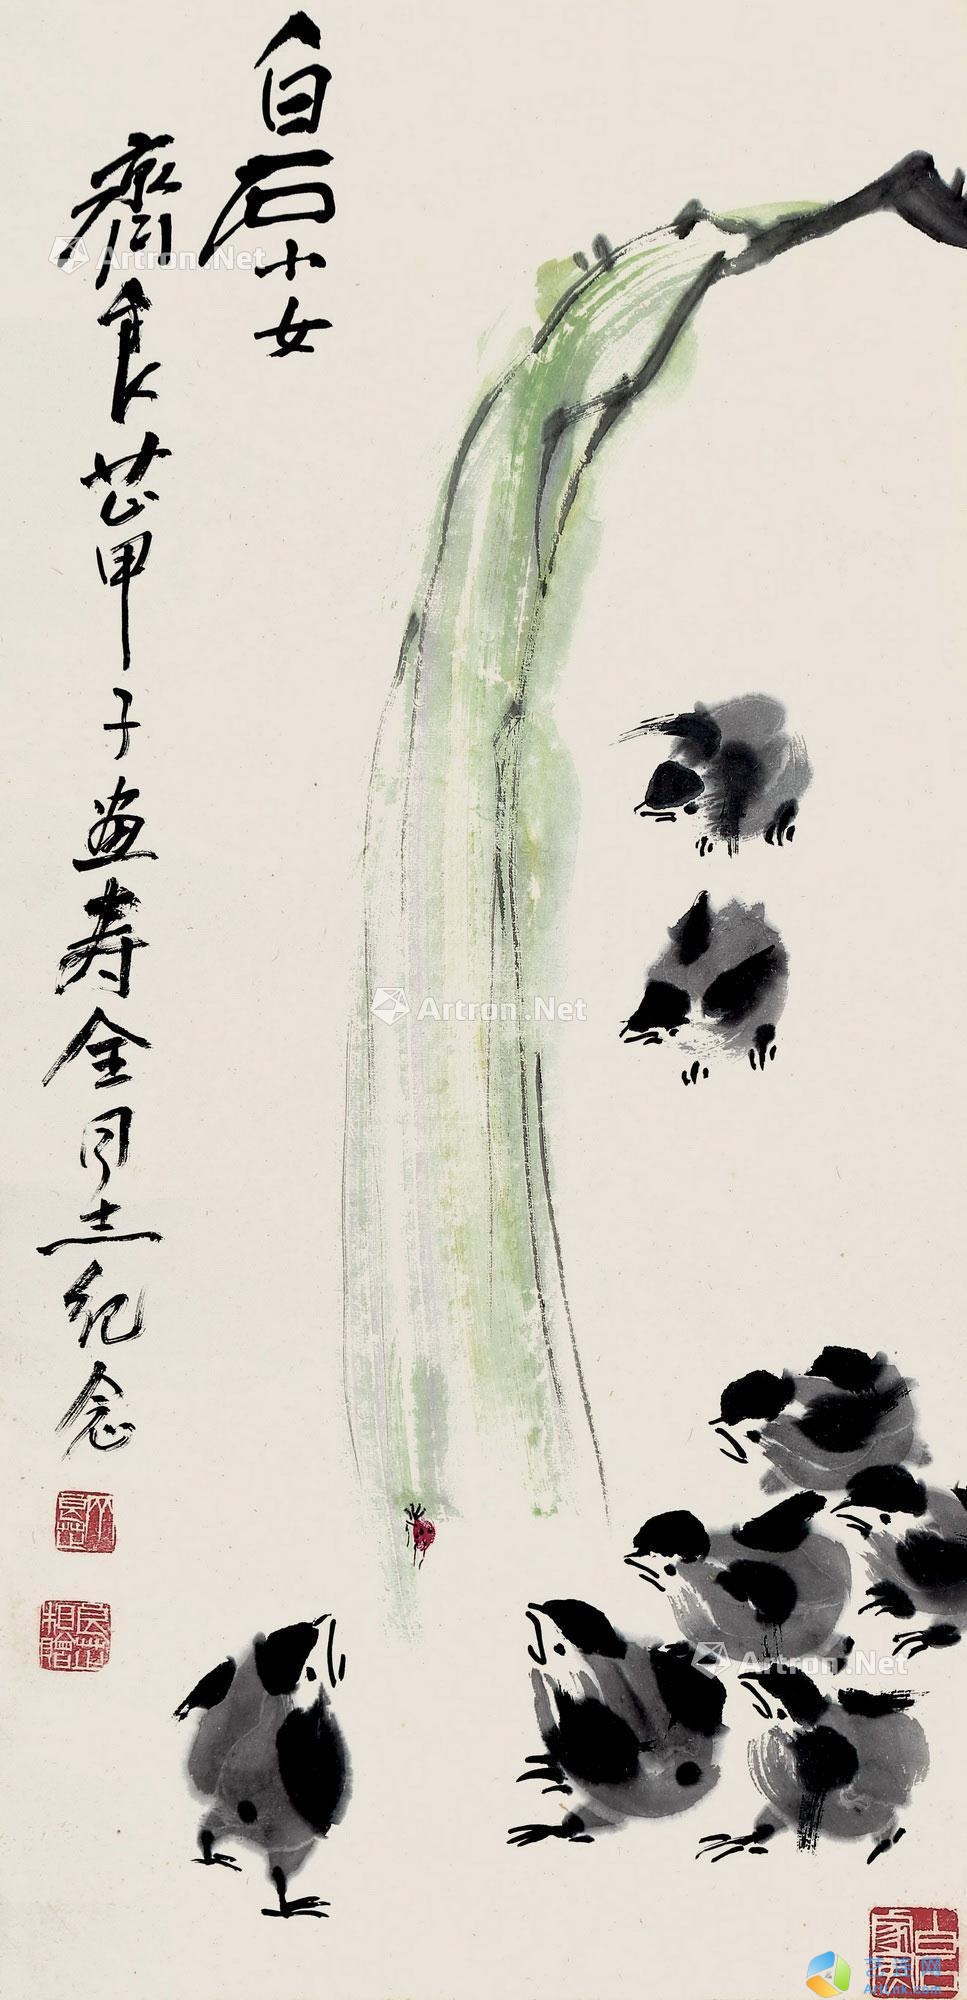 白石小女
齊良芷甲子画寿全同志纪念
Artron.Net
Artron.Net
Artron.Net